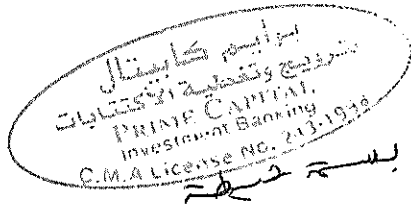 برايم كابيتال
ترويج وتغطية الاكتتابات
PRIME CAPITAL
Investment Banking
C.M.A License No. 213-1998